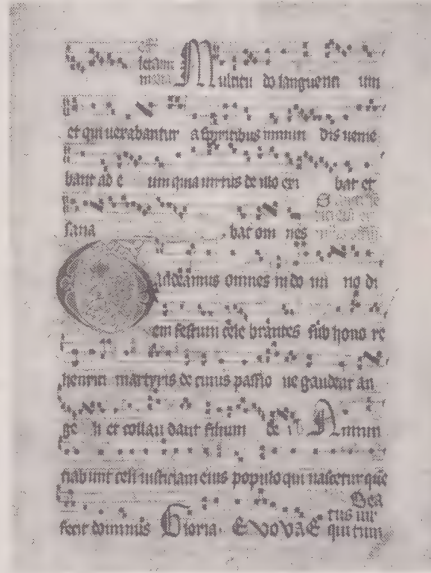 Multitu do languenti um
et qui uexabantur a spiritibus inmun dis uenie
bant ad e um quia uirtus de illo exi bat et
sana bat om nes
Gaudeamus omnes in do mi no di
em festum cele brantes sub hono re
henrici martyris de cuius passio ne gaudent an
ge li et collau dant filium de i Annun
tiabunt celi iusticiam eius populo qui nascetur que
fecit dominus Gloria. EVOVAE
Bea
tus uir
qui tim